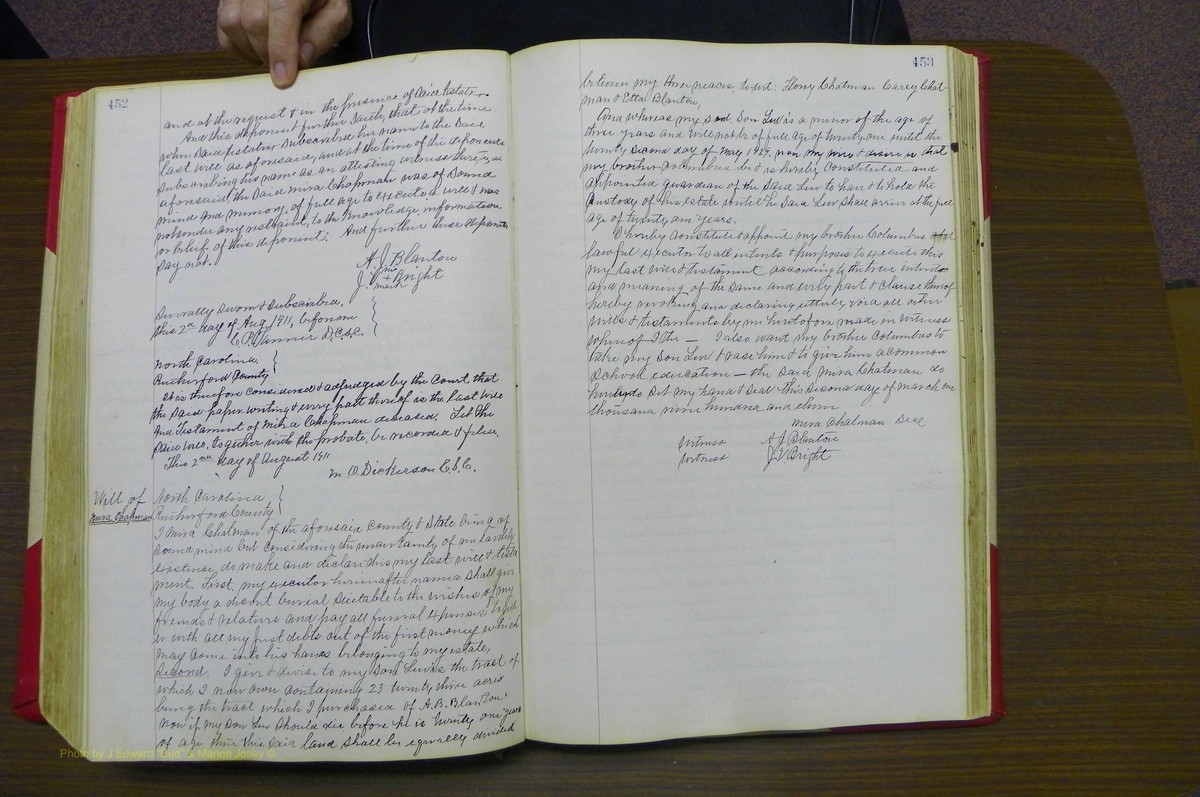 452
and at the request & in the presence of said testator.
And this deponent further saith, that at the time
when said testator subscribed her name to the said
last will as aforesaid, and at the time of the deponents
subscribing his name as an attesting witness thereto, as
aforesaid the said Mira Chapman was of sound
mind and memory, of full age to execute a will & was
not under any restraint, to the knowledge, information
or belief of this deponent: And further these deponents
say not.
A. J. Blanton
J. V. his + mark Bright
Severally Sworn & Subscribed,
this 2nd day of Aug 1911, before me
C. P. Tanner D.C.S.C.
North Carolina,
Rutherford County
It is therefore considered & adjudged by the Court, that
the said paper writing & every part thereof is the last will
and Testament of Mira Chapman deceased. Let the
said will, together with the probate, be recorded & filed.
This 2nd day of August 1911
M. O. Dickerson C.S.C.
Will of
Mira Chapman
North Carolina,
Rutherford County
I Mira Chatman of the aforesaid County & State being of
sound mind but considering the uncertainty of my earthly
existence, do make and declare this my last will & testa
ment. First, my executor hereinafter named shall give
my body a decent burial suitable to the wishes of my
friends & relatives and pay all funeral expenses togeth
er with all my just debts out of the first money which
may come into his hands belonging to my estate,
Second. I give & devise to my son Lewis the tract of
which I now own containing 23 twenty three acres
being the tract which I purchased of A. B. Blanton.
now if my son Lew should die before he is twenty one years
of age then this said land shall be equally divided
453
between my three nieces, to wit: Flory Chatman Carrey Chat
man & Etta Blanton,
And whereas my sod. son Lew is a minor of the age of
three years and will not be of full age of twenty one until the
twenty second day of May 1929. now my will & desire is that
my brother Columbus be & is hereby constituted and
appointed guardian of the said Lew to have & to hold the
custody of his estate until the said Lew shall arrive at the full
age of twenty one years.
I hereby constitute & appoint my brother Columbus
lawful executor to all intents & purposes to execute this
my last will & testament according to the true intent
and meaning of the same and every part & clause thereof
hereby revoking and declaring utterly void all other
wills & testaments by me heretofore made in witness
whereof I the — I also want my brother Columbus to
take my son Lew & raise him & to give him a common
school education — the said Mira Chatman do
hereunto set my hand & seal this second day of March one
thousand nine hundred and eleven
Mira Chatman Seal
Witness A. J. Blanton
Witness J. V. Bright
Photo by J Edward "Bud" & Marion Josey ©